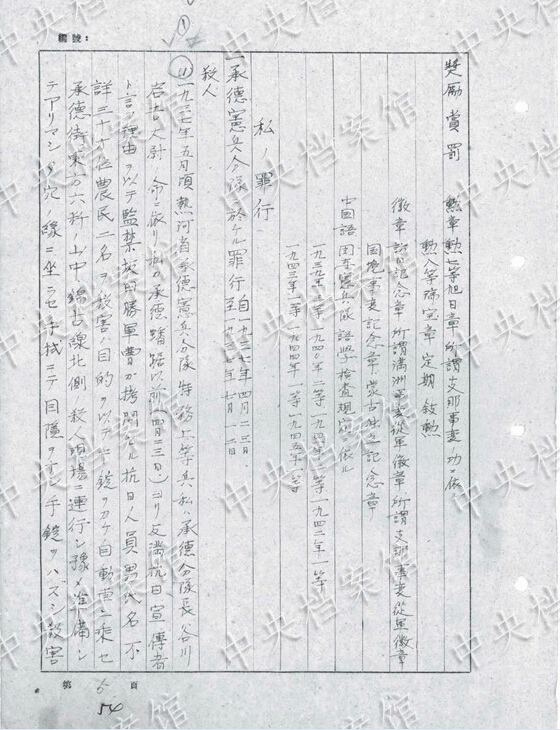 編號：
①
奨励賞罰 勲章勲七等旭日章所謂支那事変ノ功ニ依
勲八等瑞宝章定期叙勲
徽章記念章所謂満洲事変従軍徽章所謂支那事変従軍徽章
国境事変記念章蒙古
記念章
中国語関東憲兵隊語学検査規定ニ依ル
一九三九年三等一九四〇年二等一九四一年二等一九四二年一等
一九四三年一等一九四四年一等一九四五年一等
私ノ罪行
一、承德憲兵分隊ニ於ケル罪行 自一九三七年四月二三日 至一九三七年七月一二日
殺人
(1)一九三七年五月頃熱河省承德憲兵分隊特務上等兵ノ私ハ承德分隊長谷川
岩吉大尉ノ命ニ依リ私ノ承德
以前(四月二三日)ヨリ反満抗日宣傳者
ト言フ理由ヲ以テ監禁
勝軍曹ガ拷問シタル抗日人員男氏名不
詳三十才位農民二名ヲ殺害ノ目的ヲ以テ手錠ヲカケ自動車ニ乗セ
承德街東方六粁ノ山中錦古線北側ノ殺人現場ニ連行シ豫メ準備シ
テアリマシタ穴ノ縁ニ坐ラセ手拭ニテ目隠ヲナシ手錠ヲハズシ殺害
第 6 頁
54
中央档案馆